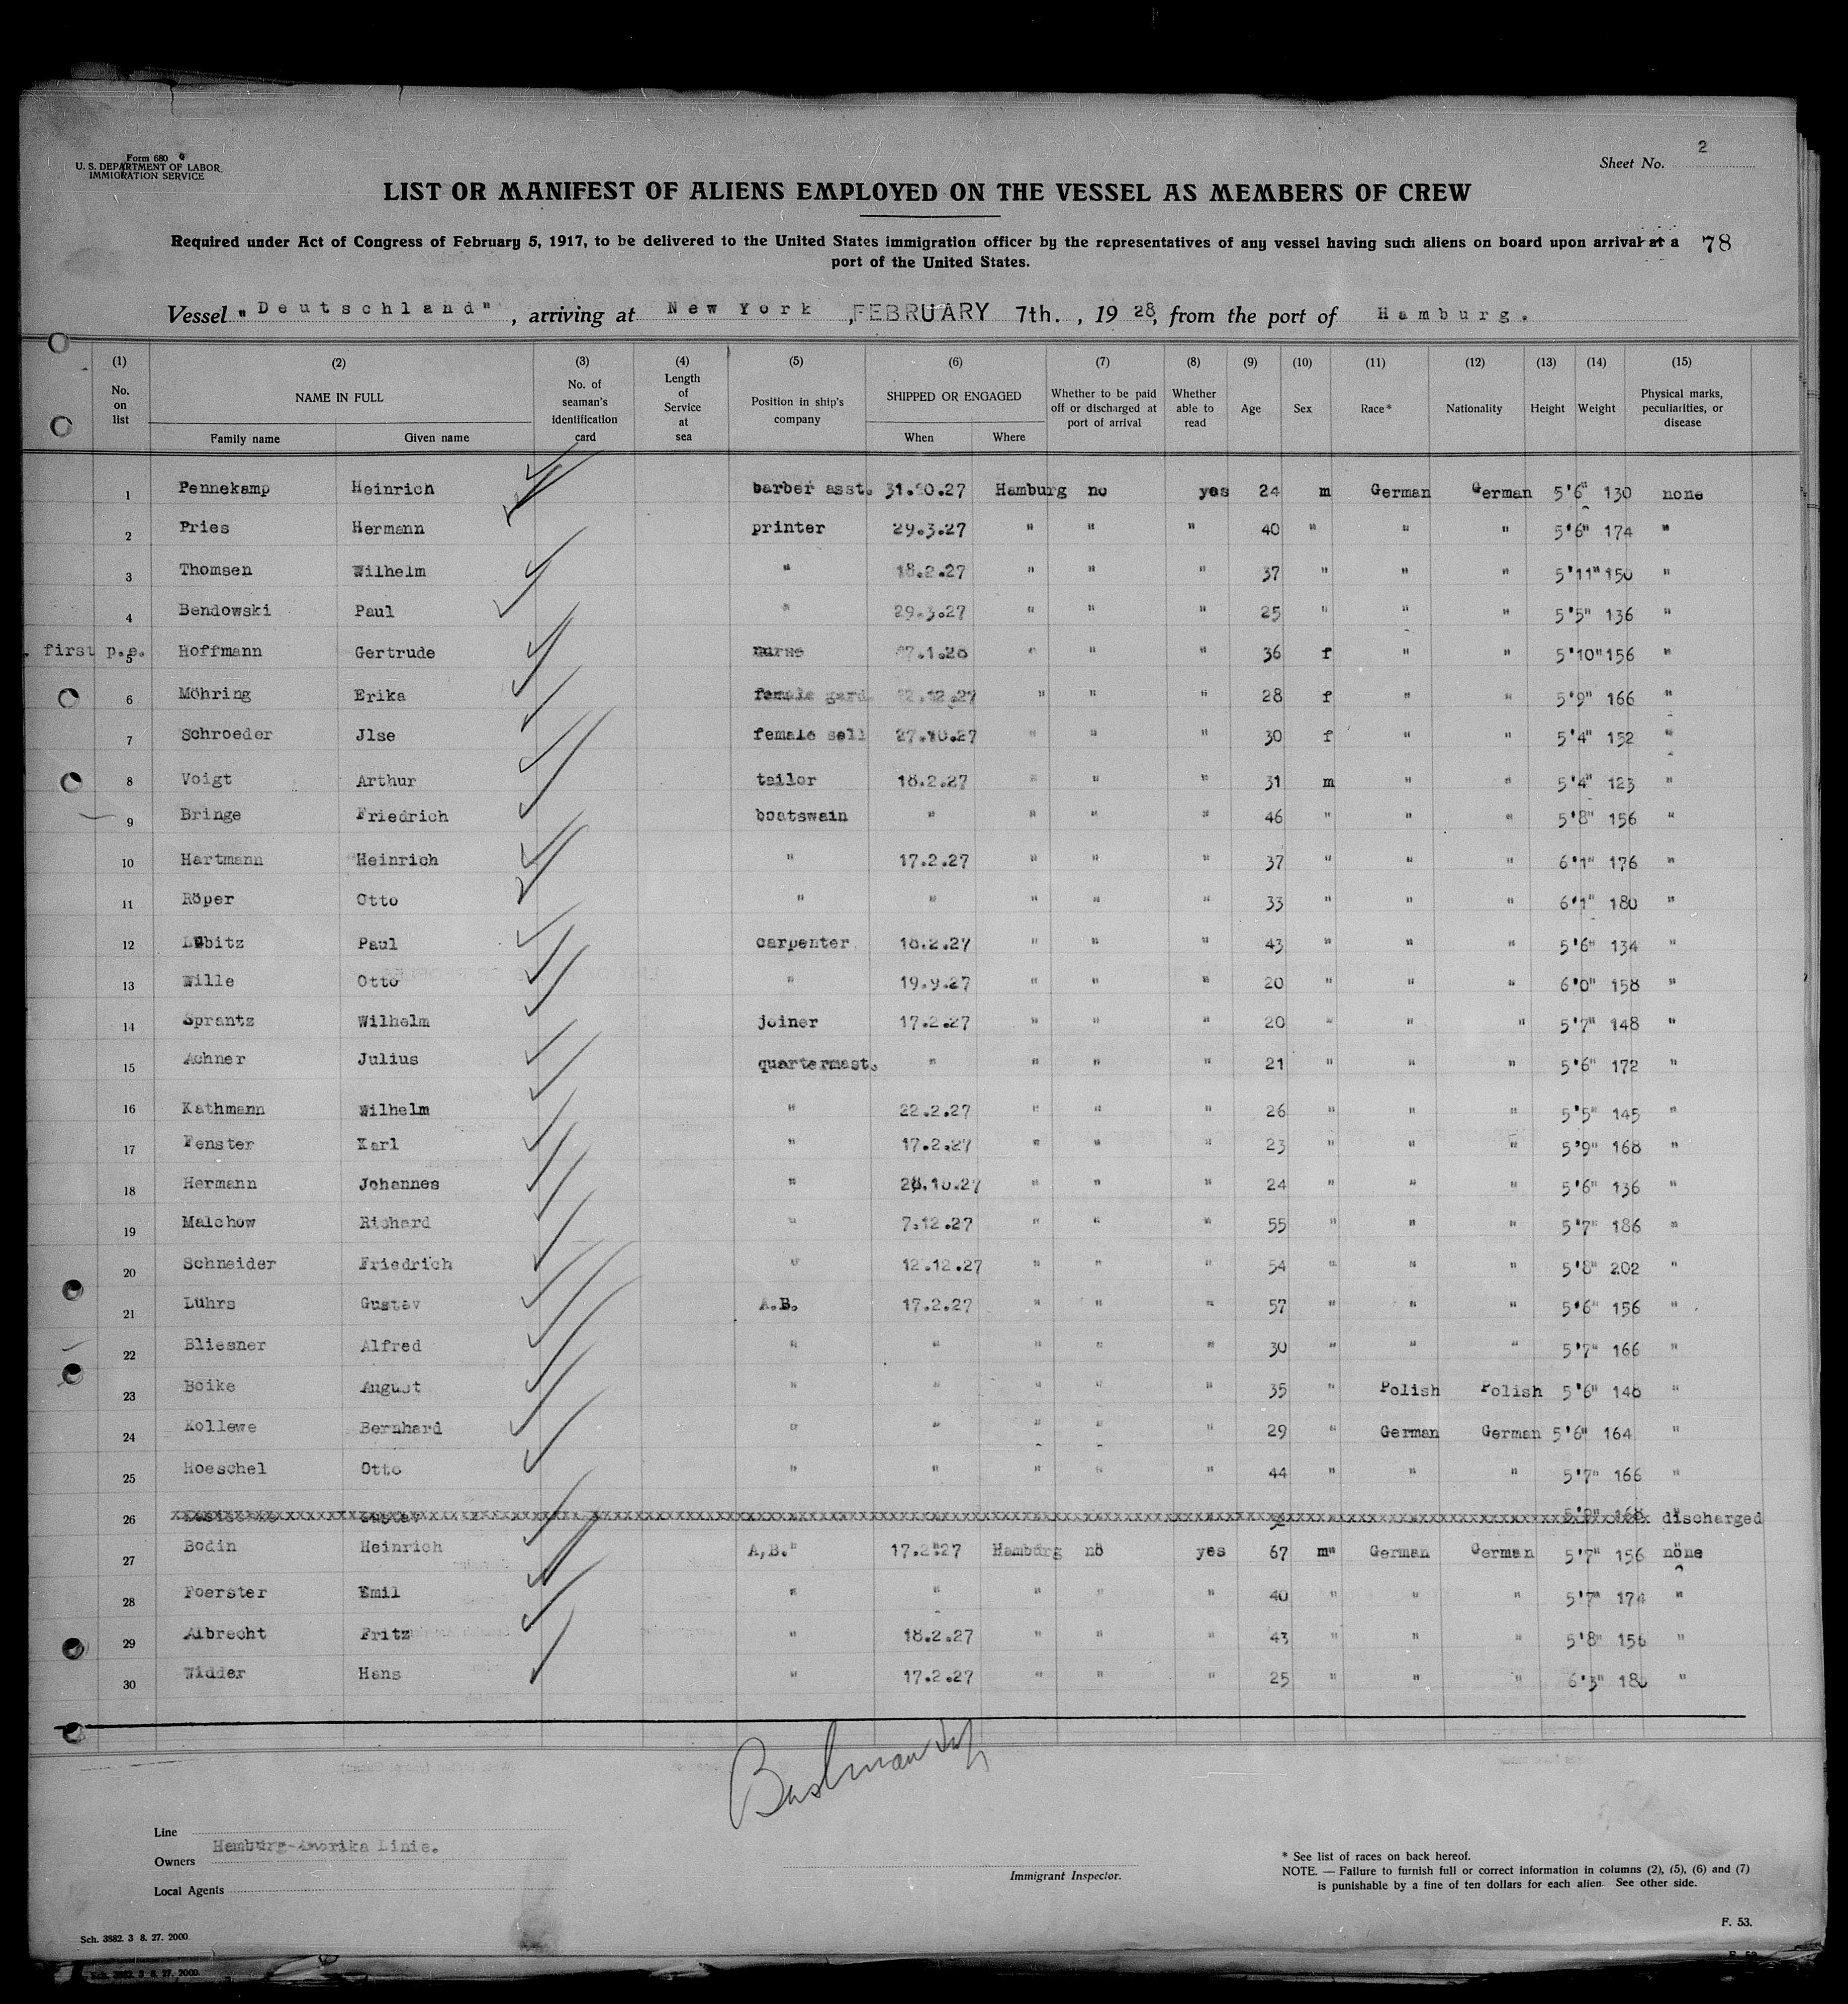 Form 680
U. S. DEPARTMENT OF LABOR
IMMIGRATION SERVICE
Sheet No. 2
LIST OR MANIFEST OF ALIENS EMPLOYED ON THE VESSEL AS MEMBERS OF CREW
Required under Act of Congress of February 5, 1917, to be delivered to the United States immigration officer by the representatives of any vessel having such aliens on board upon arrival at a
port of the United States.
78
Vessel "Deutschland", arriving at New York, FEBRUARY 7th., 1928, from the port of Hamburg.
(1) (2) (3) (4) (5) (6) (7) (8) (9) (10) (11) (12) (13) (14) (15)
No. on list NAME IN FULL Family name Given name No. of seaman's identification card Length of Service at sea Position in ship's company SHIPPED OR ENGAGED When Where Whether to be paid off or discharged at port of arrival Whether able to read Age Sex Race* Nationality Height Weight Physical marks, peculiarities, or disease
1 Pennekamp Heinrich barber asst. 31.10.27 Hamburg no yes 24 m German German 5'6" 130 none
2 Pries Hermann printer 29.3.27 " " " 40 " " " 5'6" 174 "
3 Thomsen Wilhelm " 18.2.27 " " " 37 " " " 5'11" 150 "
4 Bendowski Paul " 29.3.27 " " " 25 " " " 5'5" 136 "
first p.e. 5 Hoffmann Gertrude nurse " " " 36 f " " 5'10" 156 "
6 Möhring Erika female gard. " " " 28 f " " 5'9" 166 "
7 Schroeder Jlse female sell 27.10.27 " " " 30 f " " 5'4" 152 "
8 Voigt Arthur tailor 18.2.27 " " " 31 m " " 5'4" 123 "
9 Bringe Friedrich boatswain " " " " 46 " " " 5'8" 156 "
10 Hartmann Heinrich " 17.2.27 " " " 37 " " " 6'1" 176 "
11 Röper Otto " " " " " 33 " " " 6'1" 180 "
12 Lübitz Paul carpenter 18.2.27 " " " 43 " " " 5'6" 134 "
13 Wille Otto " 19.9.27 " " " 20 " " " 6'0" 158 "
14 Sprantz Wilhelm joiner 17.2.27 " " " 20 " " " 5'7" 148 "
15 Achner Julius quartermast. " " " " 21 " " " 5'6" 172 "
16 Kathmann Wilhelm " 22.2.27 " " " 26 " " " 5'5" 145 "
17 Fenster Karl " 17.2.27 " " " 23 " " " 5'9" 168 "
18 Hermann Johannes " 28.10.27 " " " 24 " " " 5'6" 136 "
19 Malchow Richard " 7.12.27 " " " 55 " " " 5'7" 186 "
20 Schneider Friedrich " 12.12.27 " " " 54 " " " 5'8" 202 "
21 Lührs Gustav A.B. 17.2.27 " " " 57 " " " 5'6" 156 "
22 Bliesner Alfred " " " " " 30 " " " 5'7" 166 "
23 Boike August " " " " " 35 " Polish Polish 5'6" 148 "
24 Kollewe Bernhard " " " " " 29 " German German 5'6" 164 "
25 Hoeschel Otto " " " " " 44 " " " 5'7" 166 "
26 Gustav 168 " discharged
27 Bodin Heinrich A,B." 17.2.27 Hamburg no yes 67 m" German German 5'7" 156 none
28 Foerster Emil " " " " " 40 " " " 5'7" 174 "
29 Albrecht Fritz " 18.2.27 " " " 43 " " " 5'8" 156 "
30 Widder Hans " 17.2.27 " " " 25 " " " 6'3" 180 "
Line
Owners Hamburg-Amerika Linie.
Local Agents
Immigrant Inspector.
* See list of races on back hereof.
NOTE. — Failure to furnish full or correct information in columns (2), (5), (6) and (7)
is punishable by a fine of ten dollars for each alien. See other side.
F. 53.
Sch. 3882. 3 8. 27. 2000.